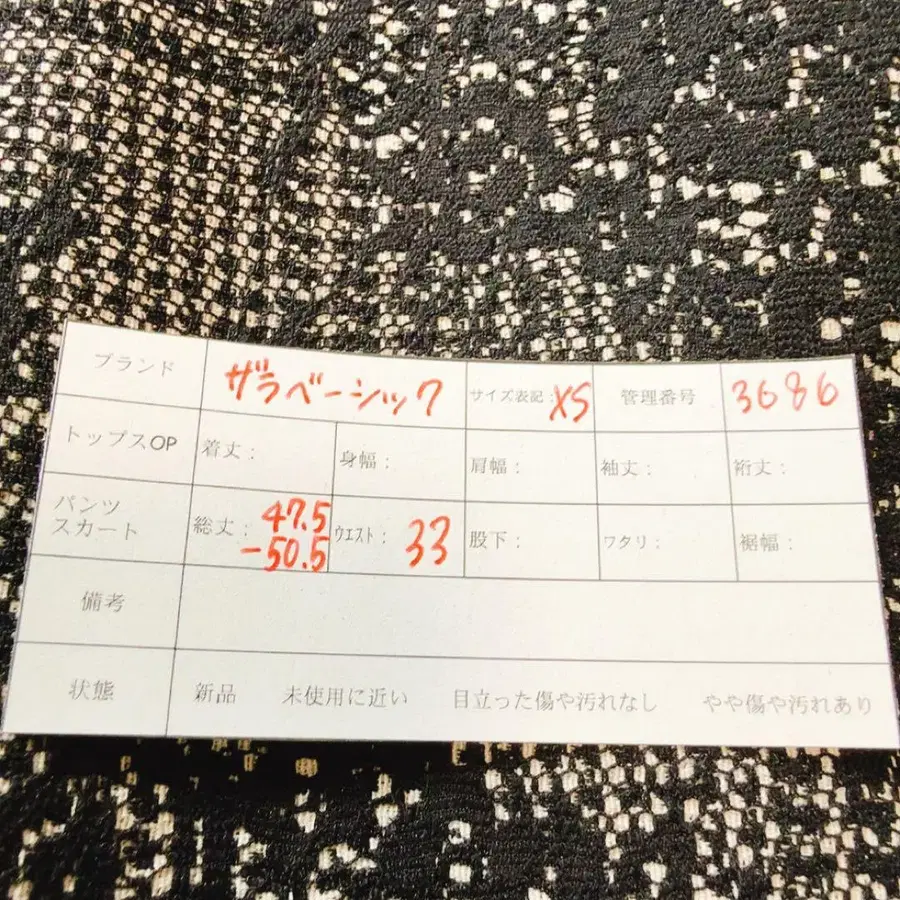 ブランド ザラベーシック サイズ表記：XS 管理番号 3686
トップスOP 着丈： 身幅： 肩幅： 袖丈： 裄丈：
パンツ
スカート 総丈：47.5
-50.5 ウエスト：33 股下： ワタリ： 裾幅：
備考
状態 新品 未使用に近い 目立った傷や汚れなし やや傷や汚れあり